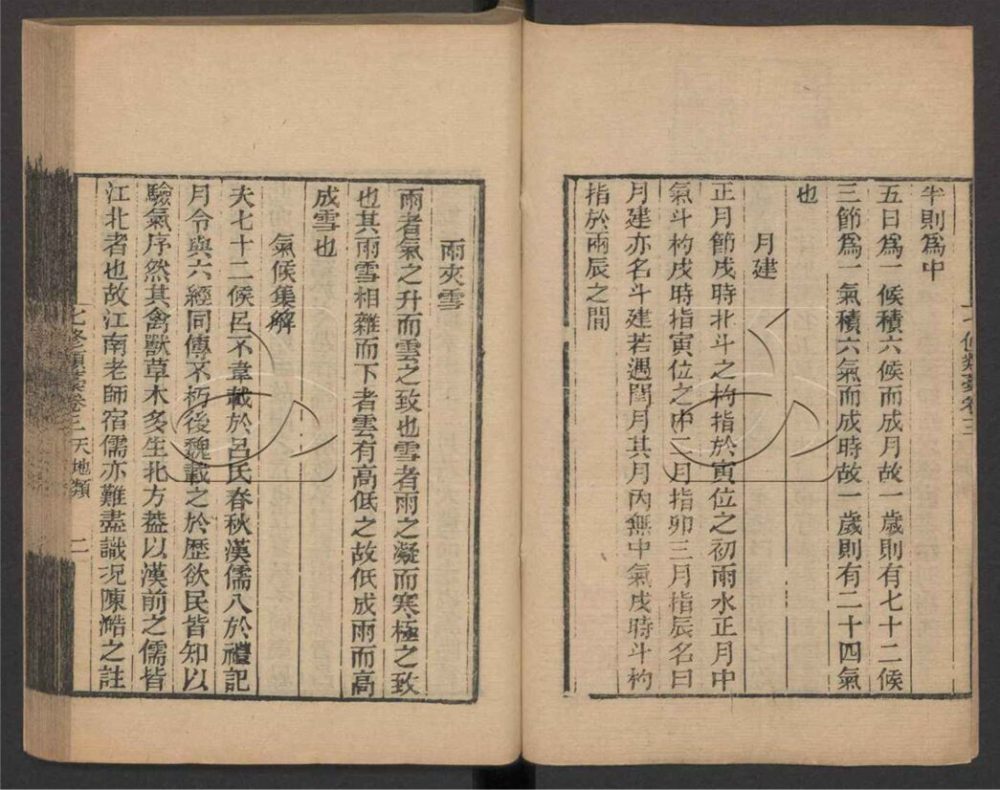 半則爲中
五日爲一候積六候而成月故一歲則有七十二候
三節爲一氣積六氣而成時故一歲則有二十四氣
也
月建
正月節戌時北斗之杓指於寅位之初雨水正月中
氣斗杓戌時指寅位之中二月指卯三月指辰名曰
月建亦名斗建若遇閏月其月內無中氣戌時斗杓
指於兩辰之間
雨夾雪
雨者氣之升而雲之致也雪者雨之凝而寒極之致
也其雨雪相雜而下者雲有高低之故低成雨而高
成雪也
氣候集解
夫七十二候呂不韋載於呂氏春秋漢儒入於禮記
月令與六經同傳不朽後魏載之於歷欲民皆知以
驗氣序然其禽獸草木多生北方葢以漢前之儒皆
江北者也故江南老師宿儒亦難盡識况陳澔之註
七修類藁卷三 天地類 二